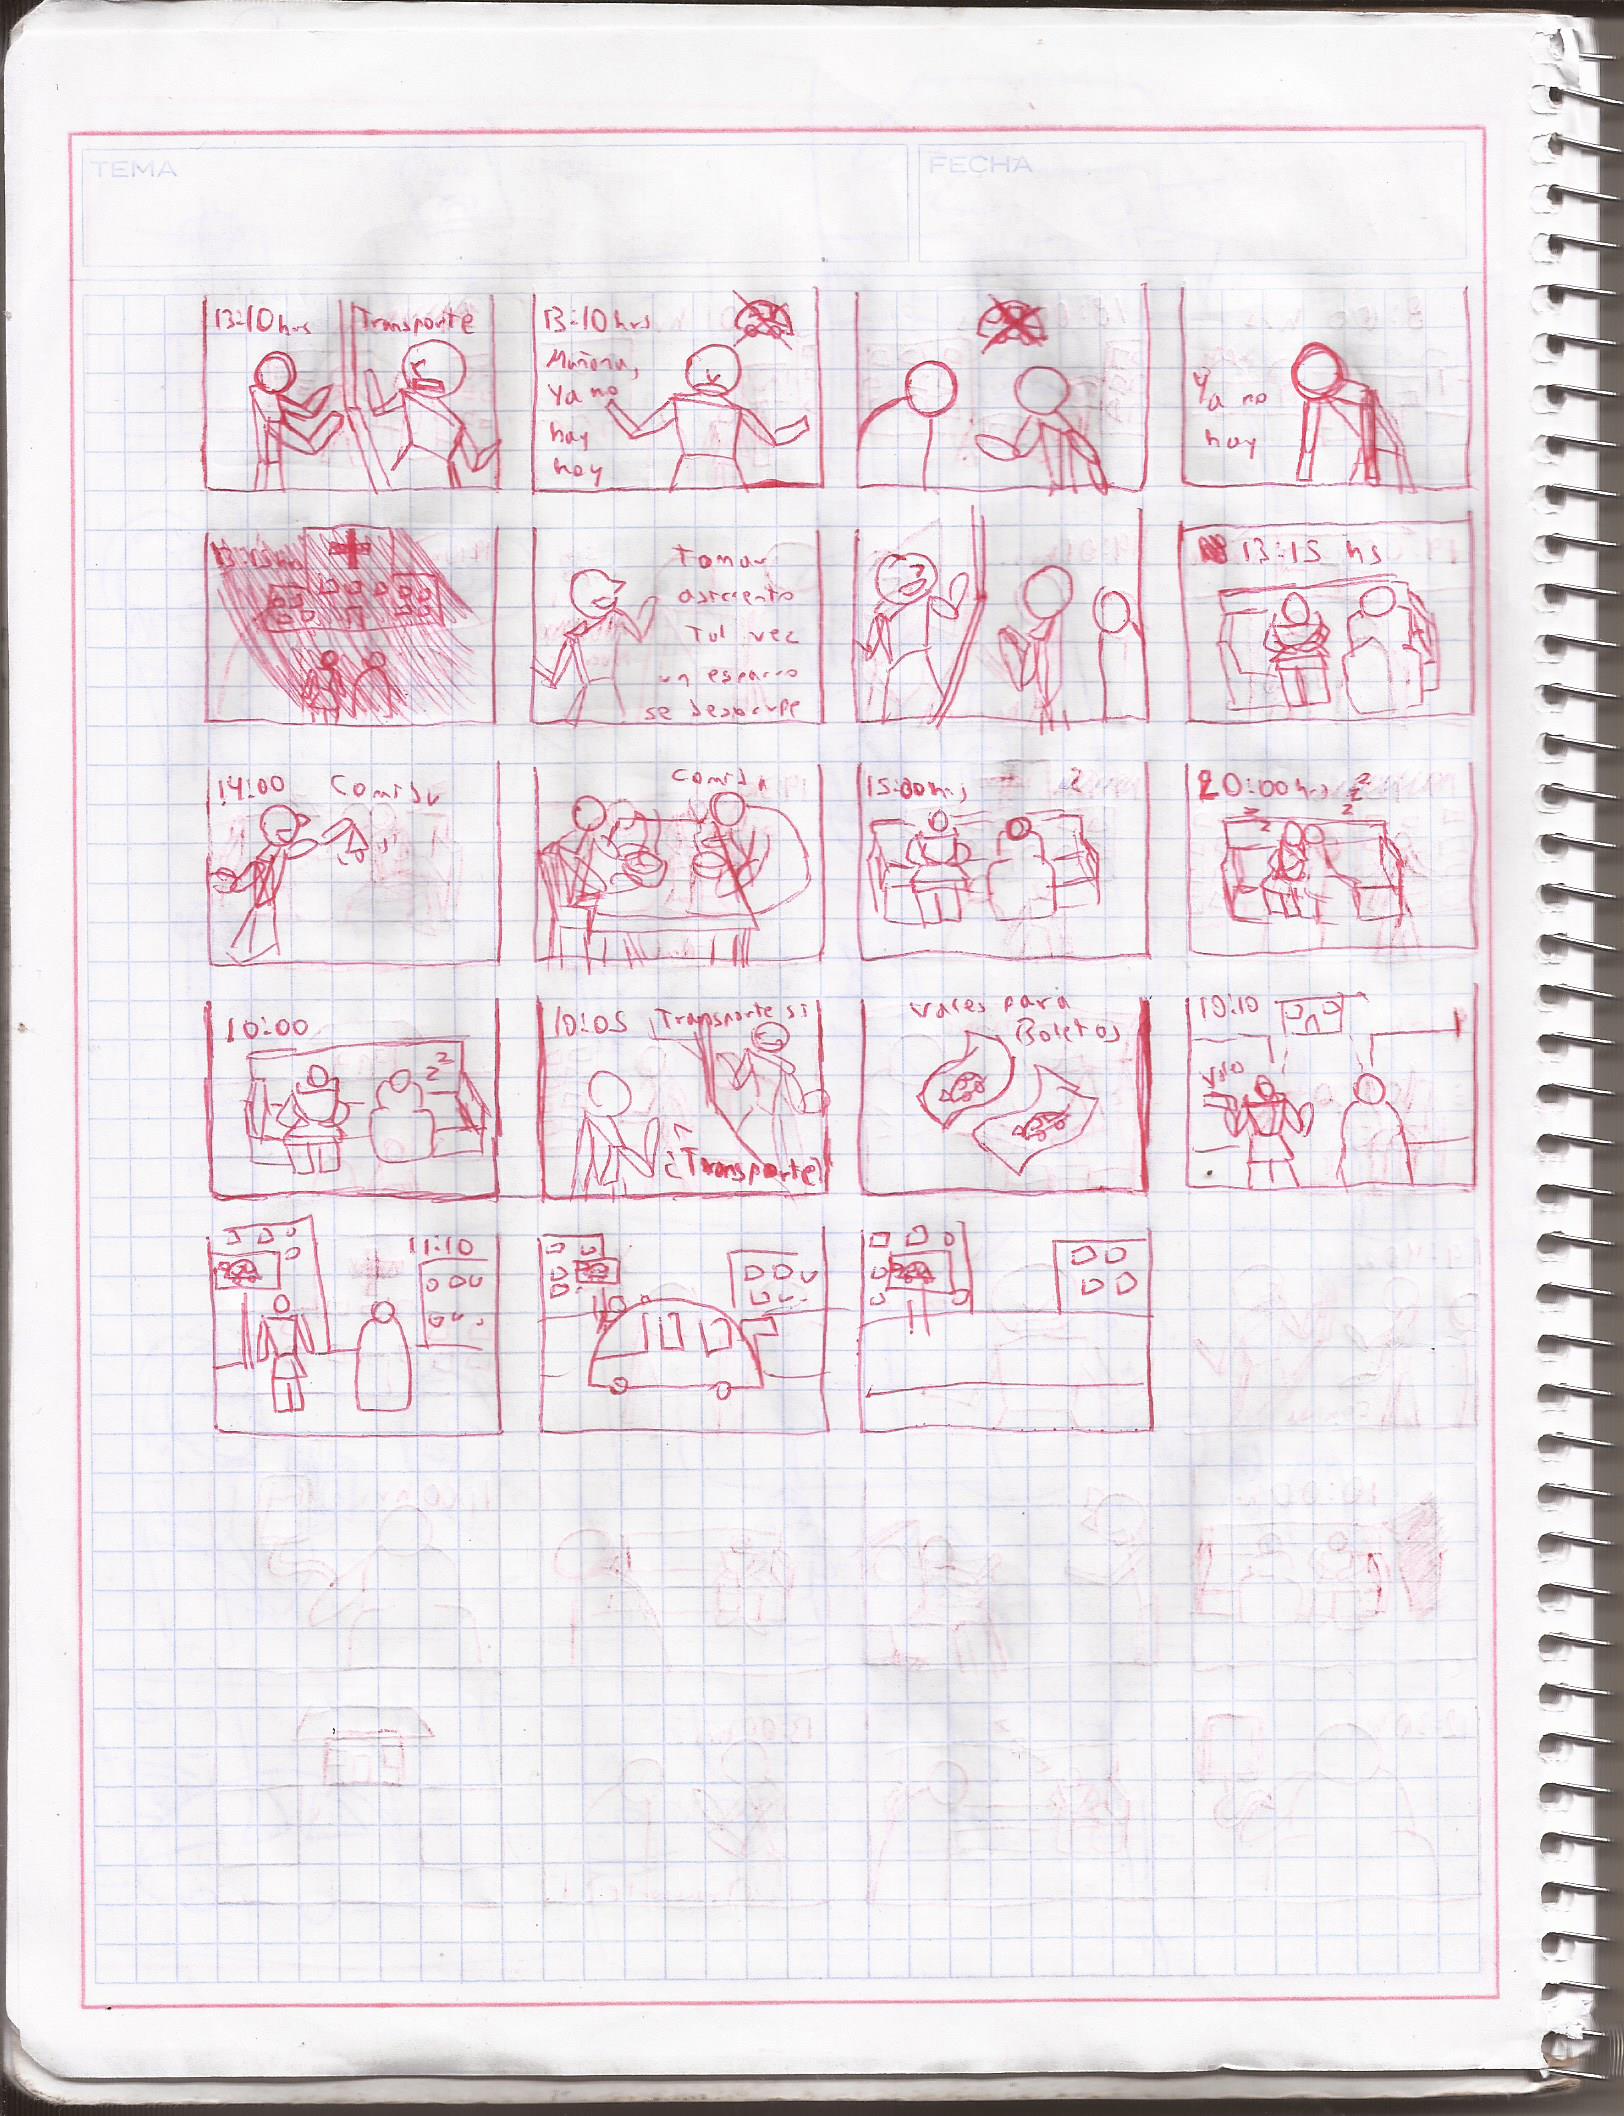 TEMA
FECHA
13:10 hrs
Transporte
13:10 hrs
Mañana,
Ya no
hay
hoy
Ya no
hay
Tomar
asiento
Tal vez
un
se desocupe
13:15 hs
14:00
Comida
Comida
15:00 hrs
z
20:00 hrs
z
z
z
z
z
10:00
z
z
10:05
Transporte si
¿Transporte?
Vales para
Boletos
10:10
Vales
11:10